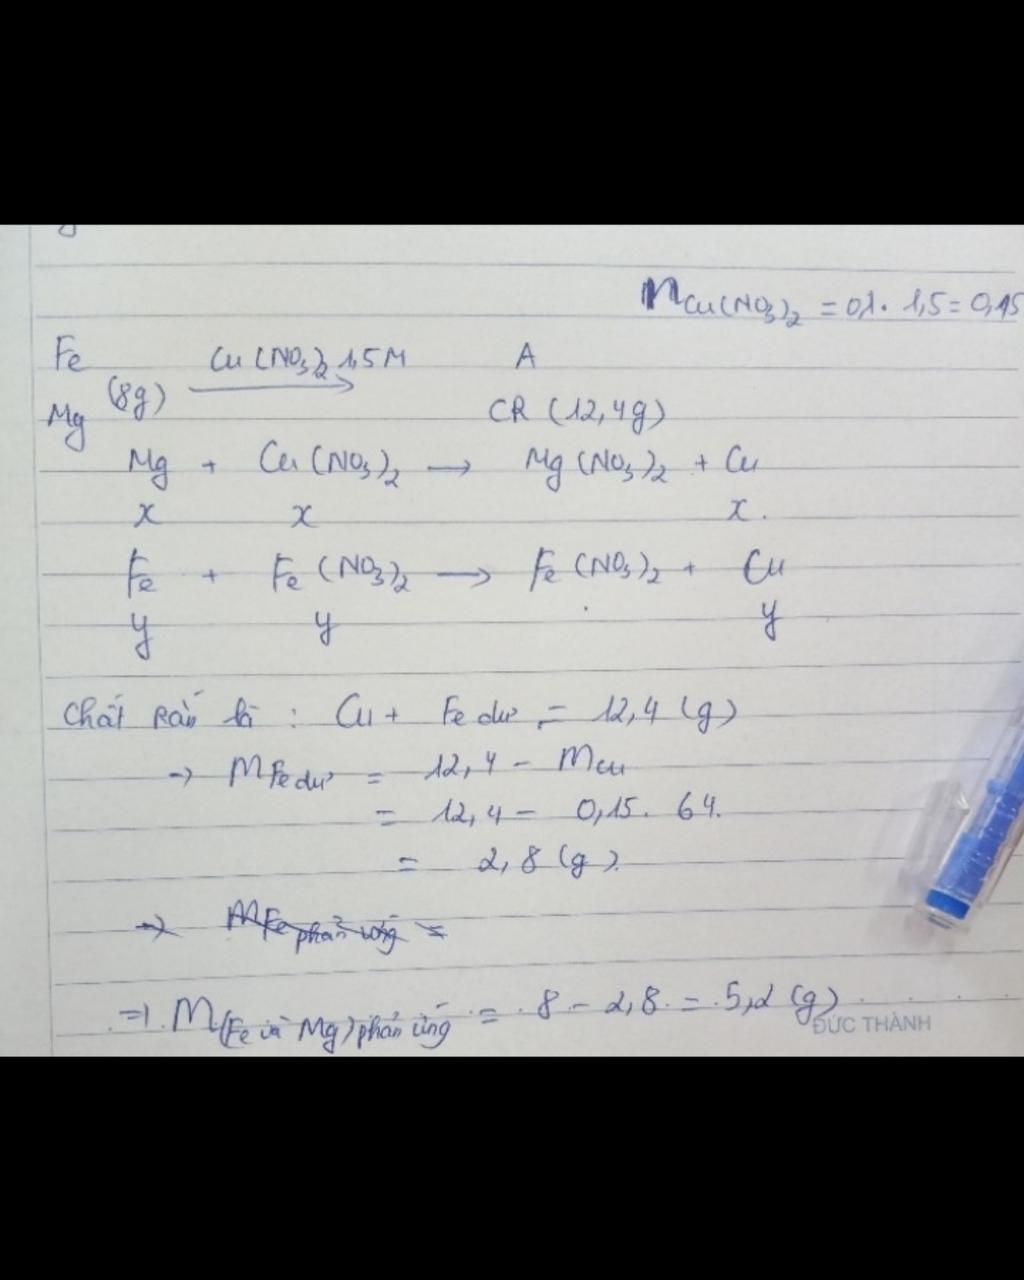 nCu(NO3)2 = 0,1. 1,5 = 0,15
Fe Cu(NO3)2 1,5M A
Mg (8g) CR (12,4g)
Mg + Cu(NO3)2 → Mg(NO3)2 + Cu
x x x.
Fe + Fe(NO3)2 → Fe(NO3)2 + Cu
y y y
Chất rắn là : Cu + Fe dư = 12,4 (g)
→ mFe dư = 12,4 - mCu
= 12,4 - 0,15. 64.
= 2,8 (g).
→ mFe phản ứng =
⇒ m(Fe và Mg) phản ứng = 8 - 2,8 = 5,2 (g)
ĐỨC THÀNH